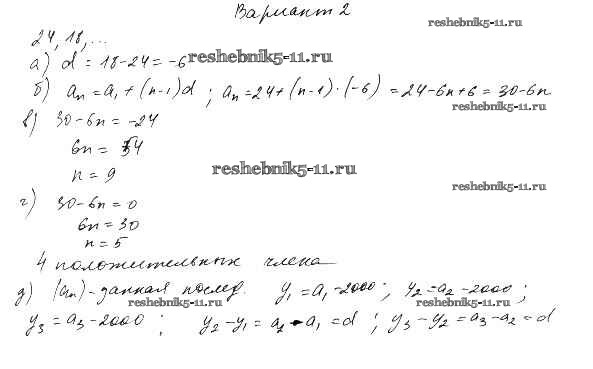 Вариант 2
reshebnik5-11.ru
24, 18, ...
а) d = 18-24 = -6
reshebnik5-11.ru
б) an = a1 + (n-1)d ; an = 24 + (n-1)·(-6) = 24-6n+6 = 30-6n
reshebnik5-11.ru
в) 30-6n = -24
6n = 54
n = 9
reshebnik5-11.ru
reshebnik5-11.ru
г) 30-6n = 0
6n = 30
n = 5
4 положительных члена
д) (an) - данная послед. y1 = a1-2000 ; y2 = a2-2000 ;
reshebnik5-11.ru
reshebnik5-11.ru
y3 = a3-2000 ; y2-y1 = a2-a1 = d ; y3-y2 = a3-a2 = d